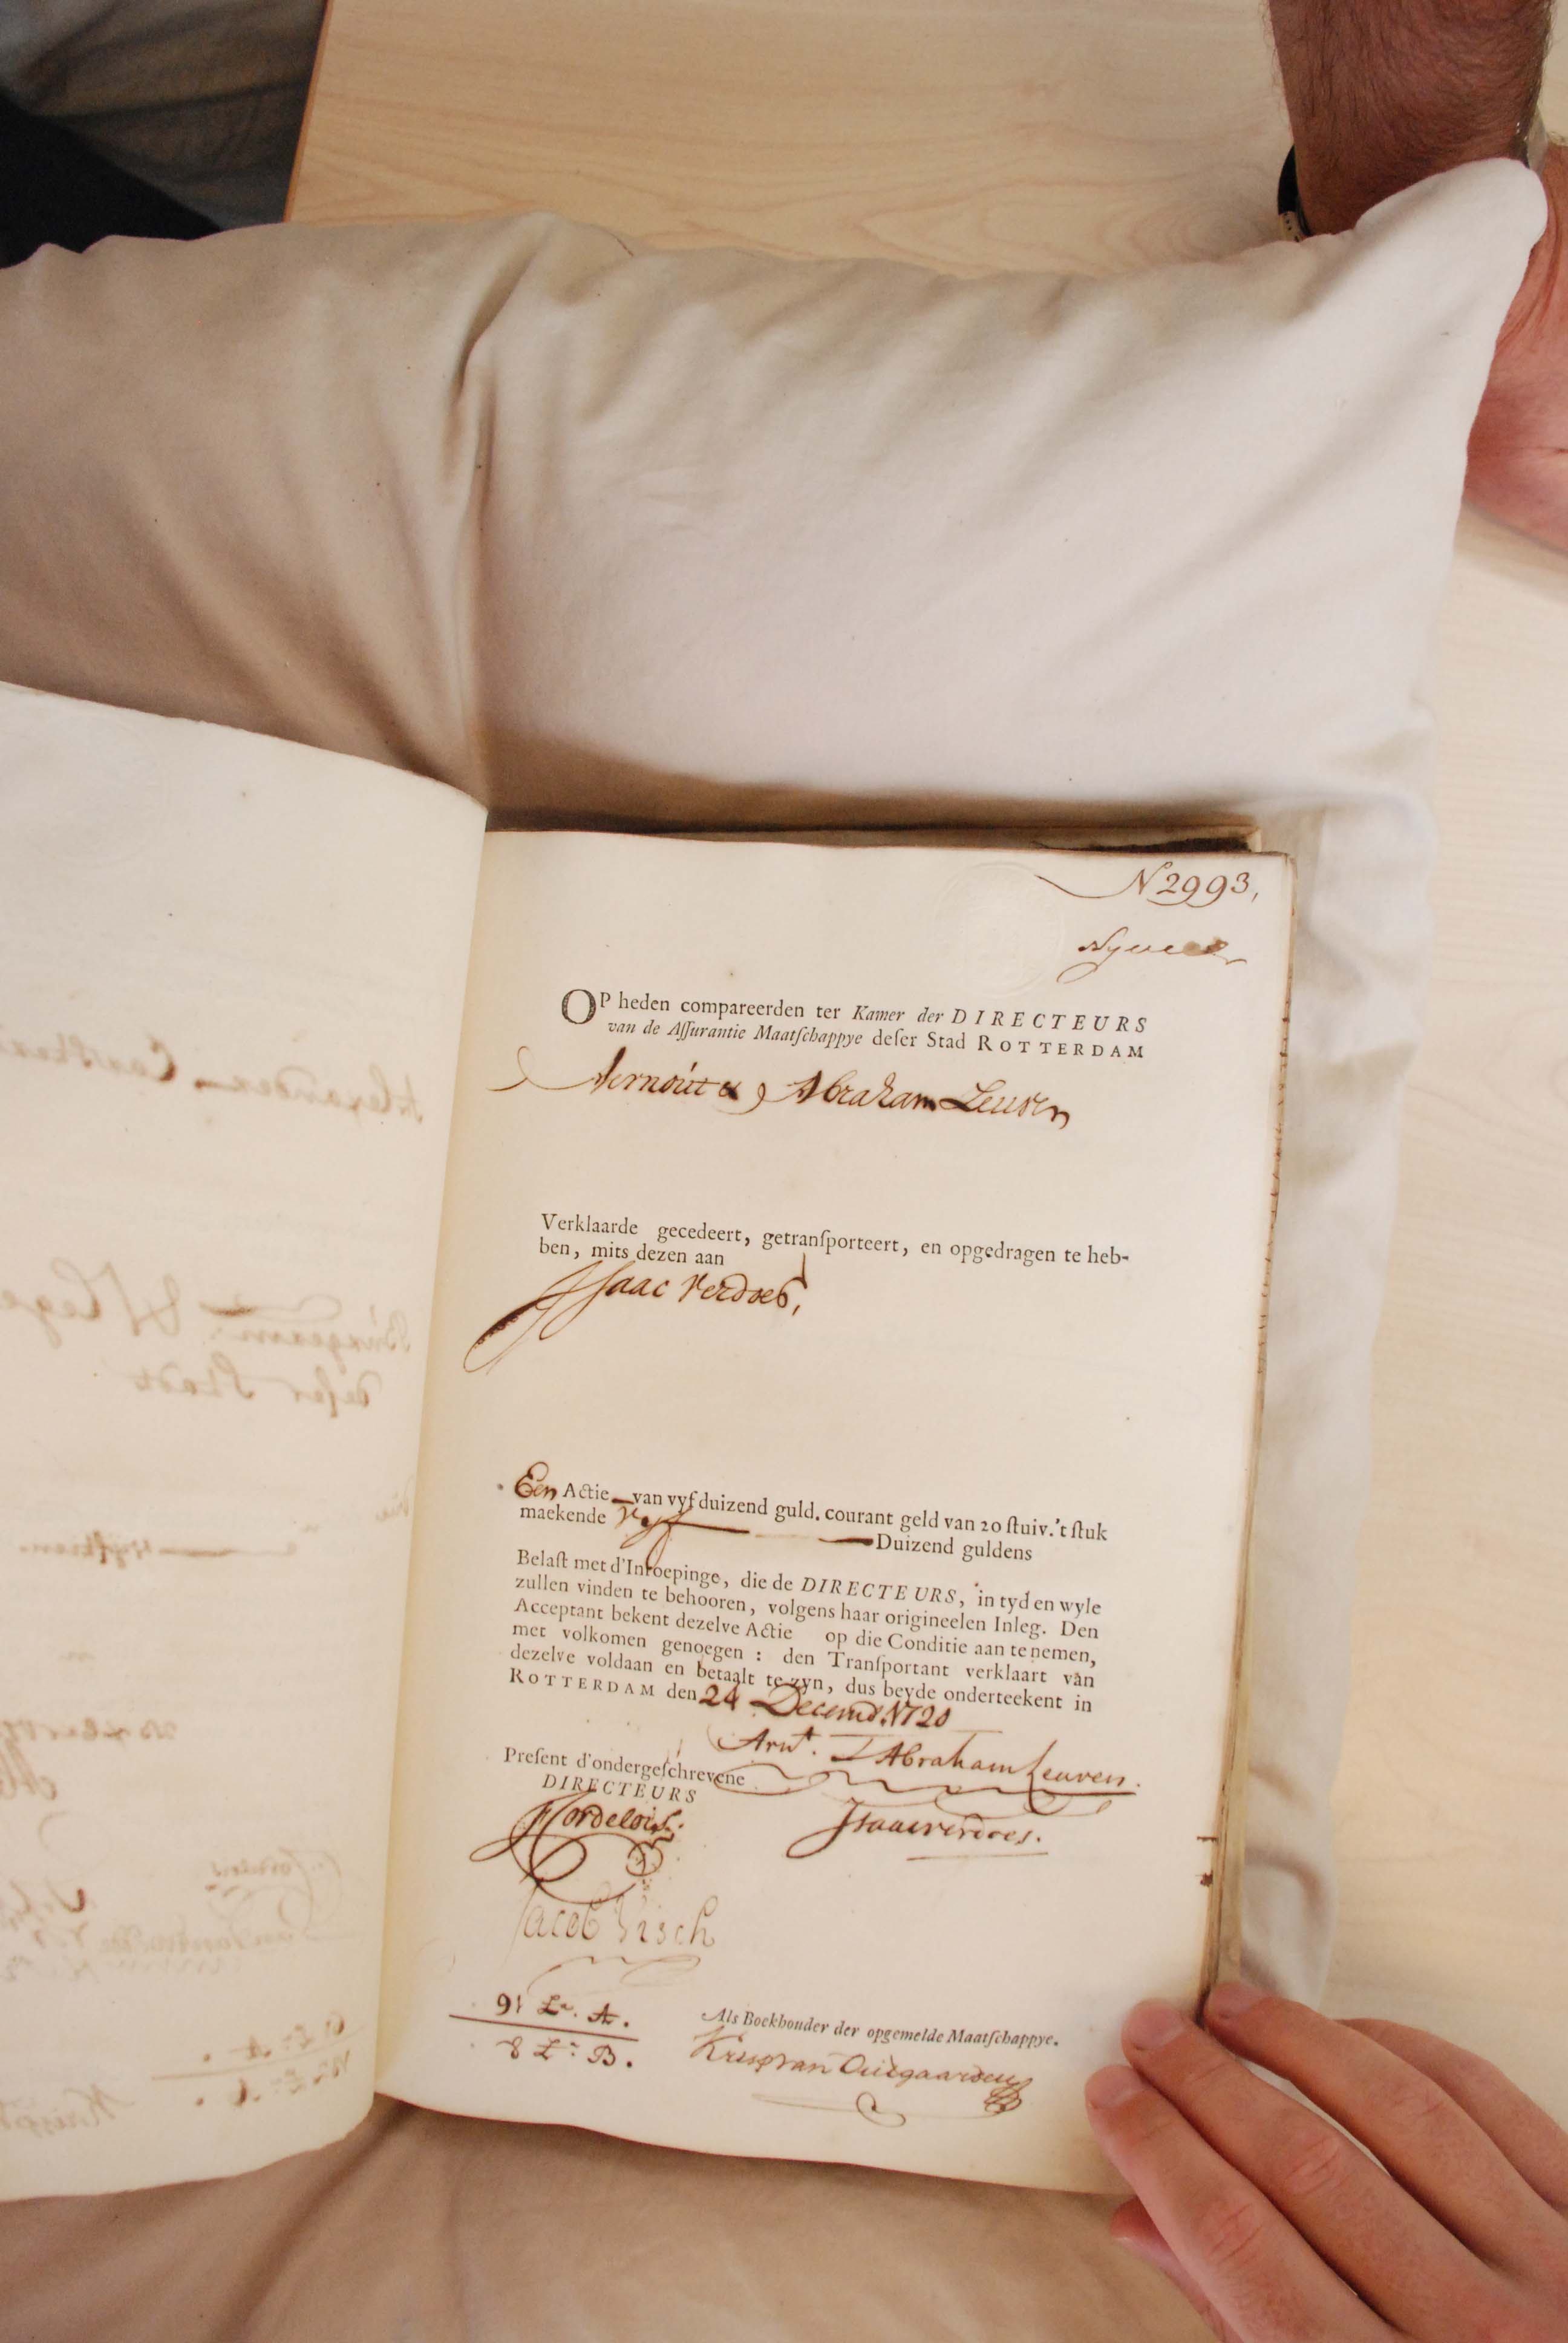 N 2993,
OP heden compareerden ter Kamer der DIRECTEURS
van de Aſſurantie Maatſchappye deſer Stad ROTTERDAM
Aernout & Abraham Leuven
Verklaarde gecedeert, getranſporteert, en opgedragen te heb-
ben, mits dezen aan
Iſaac Verdoes,
Een Actie van vyf duizend guld. courant geld van 20 ſtuiv. 't ſtuk
maekende Vyf Duizend guldens
Belaſt met d'Inroepinge, die de DIRECTEURS, in tyd en wyle
zullen vinden te behooren, volgens haar origineelen Inleg. Den
Acceptant bekent dezelve Actie op die Conditie aan te nemen,
met volkomen genoegen : den Tranſportant verklaart van
dezelve voldaan en betaalt te zyn, dus beyde onderteekent in
ROTTERDAM den 24 Decemb. 1720
Arnt. & Abraham Leuven.
Preſent d'ondergeſchrevene
DIRECTEURS
Isaac verdoes.
Jacob Visch
91 Lr. A.
8 Lr. B.
Als Boekhouder der opgemelde Maatſchappye.